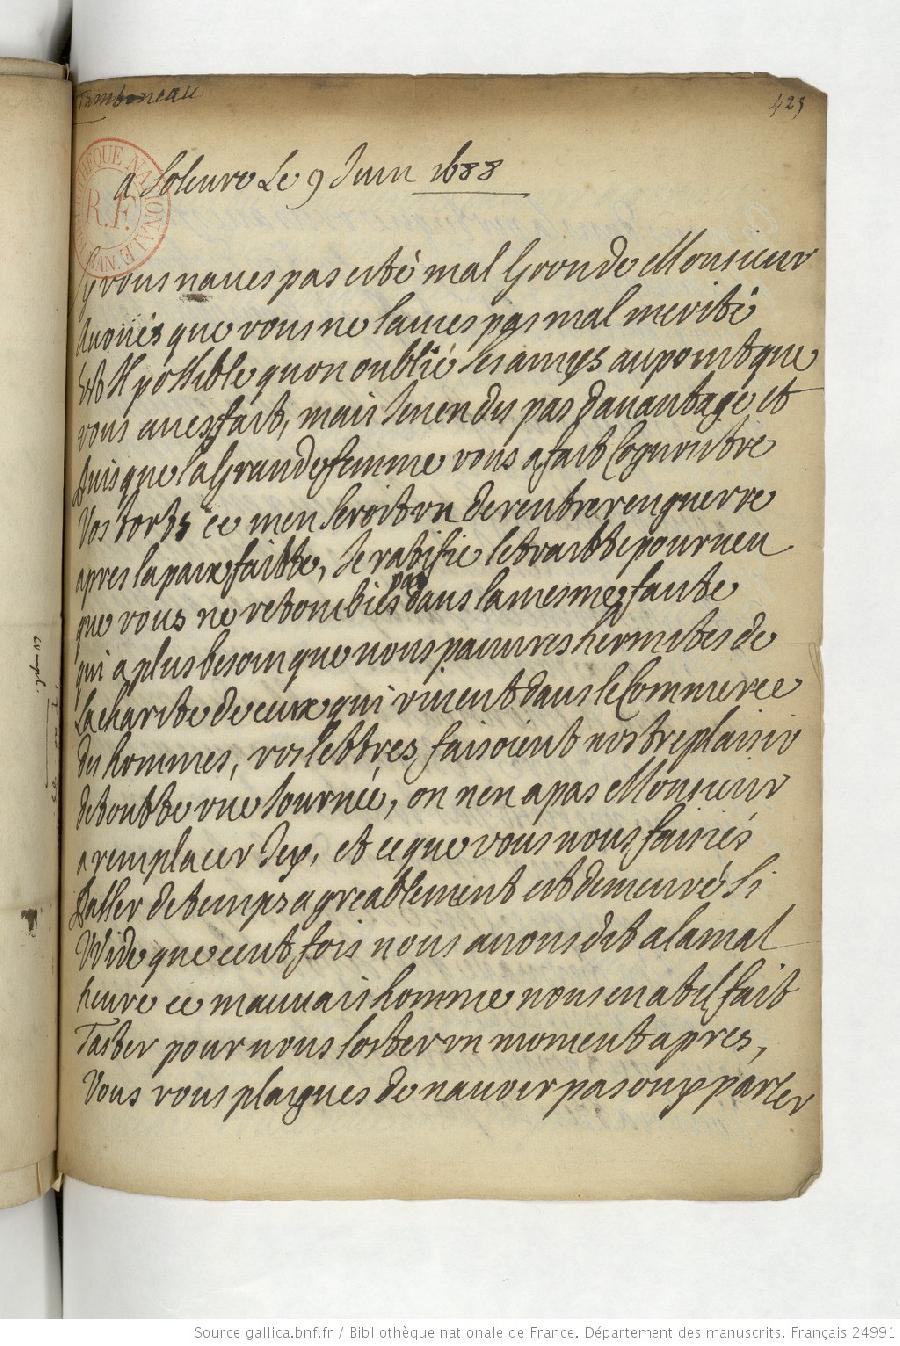 Tamboneau
423
a Soleure Le 9 Juin 1688
sy vous naves pas esté mal Grondé Monsieur
Avoües que vous ne laues pas mal merité
Est Il possible quon oublie ses amys au point que
vous aues fait, mais Jenendis pas dauantage et
puis que la Grande femme vous a fait Cognoistre
Vos torts ce men seroit un de rentrer en guerre
apres la paix faitte, Je ratifie le traitté pourueu
que vous ne retombies pas dans la mesme faute
qui a plus besoin que nous pauures hermites de
La charité de ceux qui viuent dans le Commerce
des hommes, vos lettres faisoient nostre plaisir
de toutte une Journée, on nen a pas Monsieur
a remplacer Icy, et ce que vous nous faisiés
Passer de temps agreablement est demeuré si
Vuide que cent fois nous auons dit a la mal
heure ce mauuais homme nous en a til fait
Taster pour nous loster un moment apres,
Vous vous plaignes de nauoir pas ouy parler
Source gallica.bnf.fr / Bibliothèque nationale de France. Département des manuscrits. Français 24991